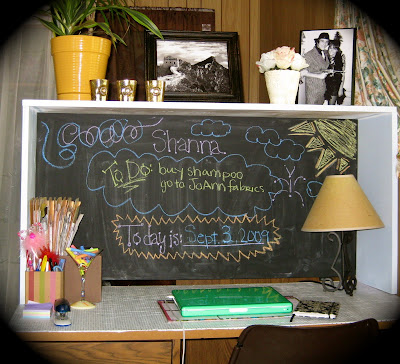 Shanna
To Do: buy shampoo
go to JoAnn fabrics
Today is: Sept. 3, 2009